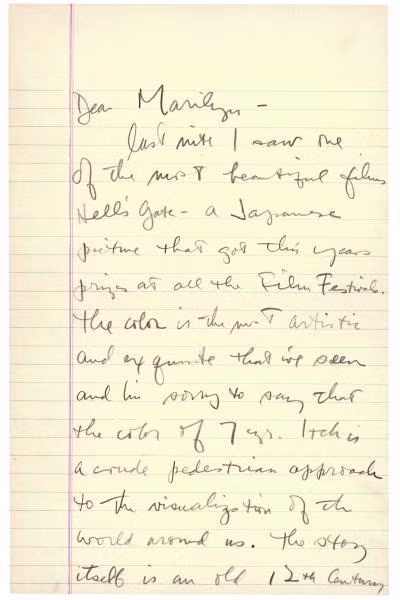 Dear Marilyn -
last nite I saw one
of the most beautiful films
Hell's Gate - a Japanese
picture that got this years
prizes at all the Film Festivals.
The color is the most artistic
and exquisite that i've seen
and I'm sorry to say that
the color of 7 yr. Itch is
a crude pedestrian approach
to the visualization of the
world around us. The story
itself is an old 12th Century